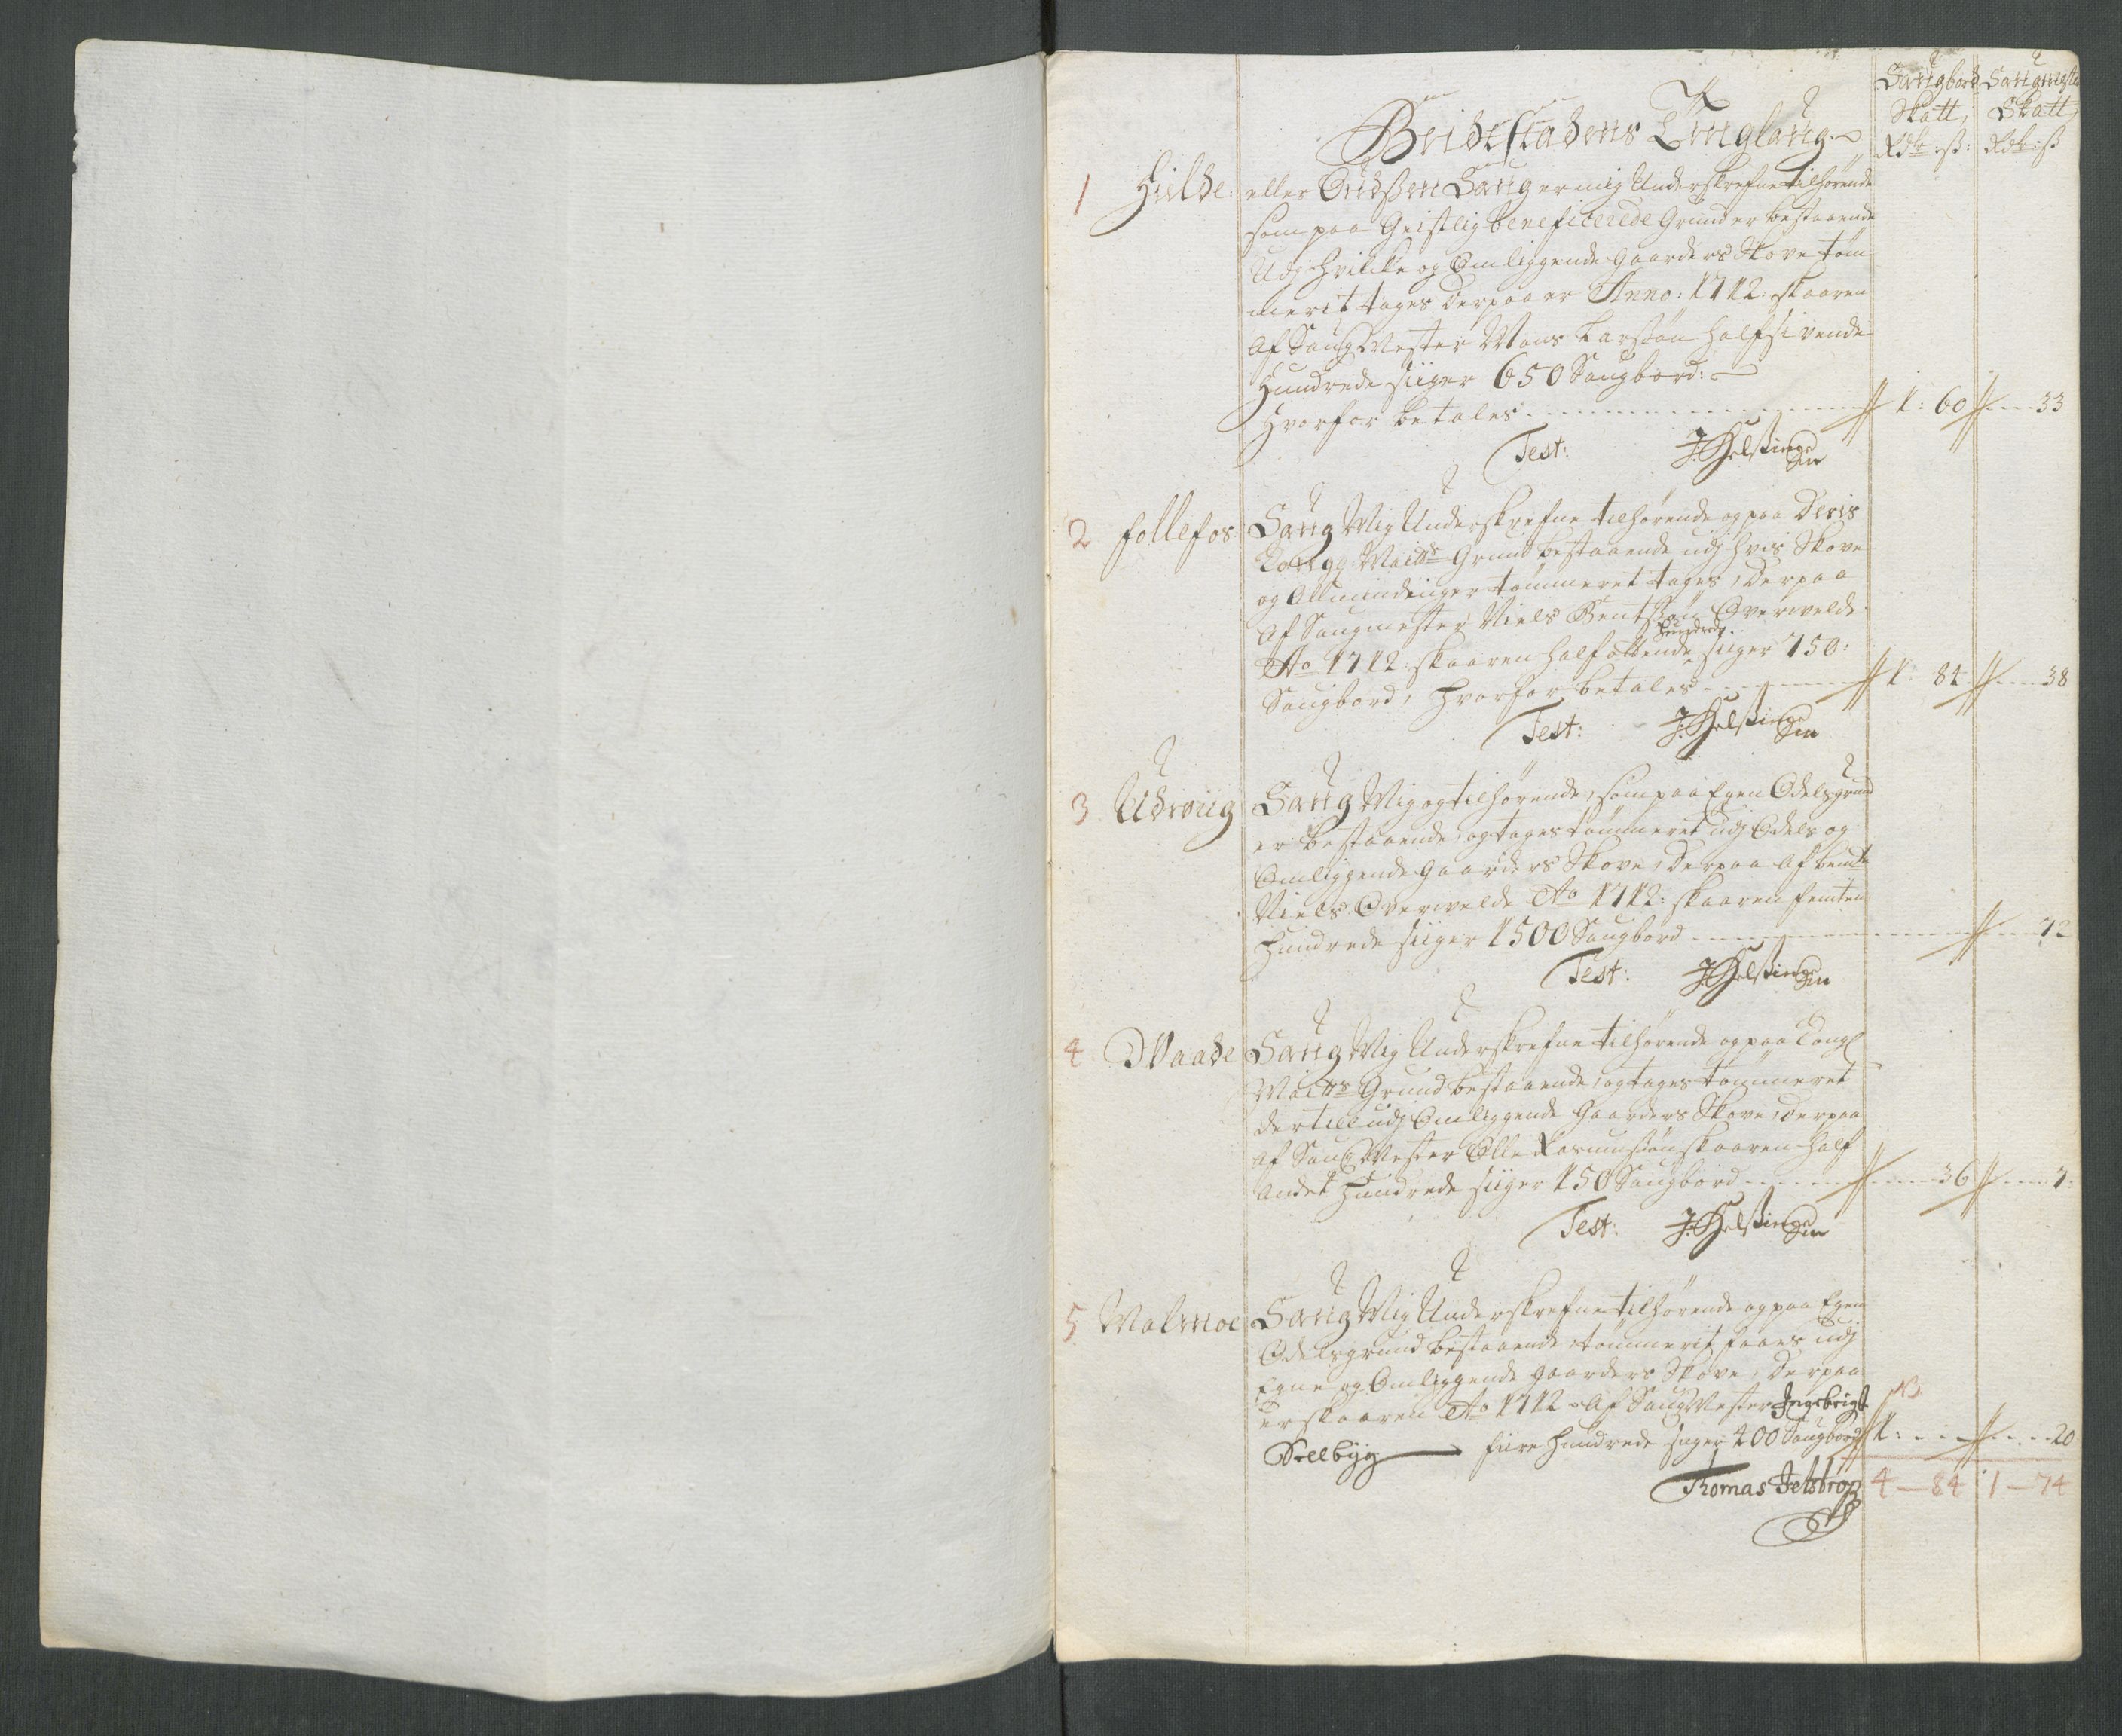 Saugbord Saugmester
Skatt, Skatt,
Rdlr: ß: Rdlr: ß
Beidestadens Tinglaug
1 Hielde: eller Saug er mig Underskrefne tilhørende
som paa Geistlig beneficerede Grund er bestaaende
Udj hvilke og Omliggende Gaarders Skove tøm-
merit tages derpaa er Anno: 1712: skaaren
Af Saug Mester Mons Larssøn halfsivende
Hundrede siiger 650 Saugbord:
Hvorfor betales 1: 60 33
Test: J. Helsting
2 follefos Saug Mig Underskrefne tilhørende og paa Deris
Kongg: Maitts Grund bestaaende udj hvis Skove
og Allmindinger tømmeret tages, Derpaa
Af Saugmester Niels Bentssøn Overvelde
Hundrede
Ao 1712: skaaren half ottende siiger 750:
Saugbord, hvorfor betales 1: 84 38
Test: J. Helsting
3 Udvoug Saug Mig og tilhørende, som paa Egen Odelsgrund
er bestaaende, og tages tømmeret udj Odels og
Omliggende Gaarders Skove, Derpaa Af bemte
Niels Overvelde Ao 1712: skaaren femten
hundrede siiger 1500 Saugbord 72
Test: J. Helsting
4 Vaade Saug Mig Underskrefne tilhørende og paa Kongl
Maitts Grund bestaaende, og tages tømmeret
dertill udj Omliggende Gaarders Skove, derpaa
af Saug Mester Olle Rasmussøn skaaren half
Andet Hundrede siiger 150 Saugbord 36 7:
Test: J. Helsting
5 Malmoe Saug Mig Underskrefne tilhørende og paa Egen
Odelsgrund bestaaende, tømmerit faaes udj
Egne og Omliggende gaarders Skove, Derpaa
er skaaren Ao 1712 Af Saug Mester Ingebrigt
NB
Selbyg fiire hundrede siiger 400 Saugbord 1: 20
Thomas Jelstrop 4 - 84 1 - 74